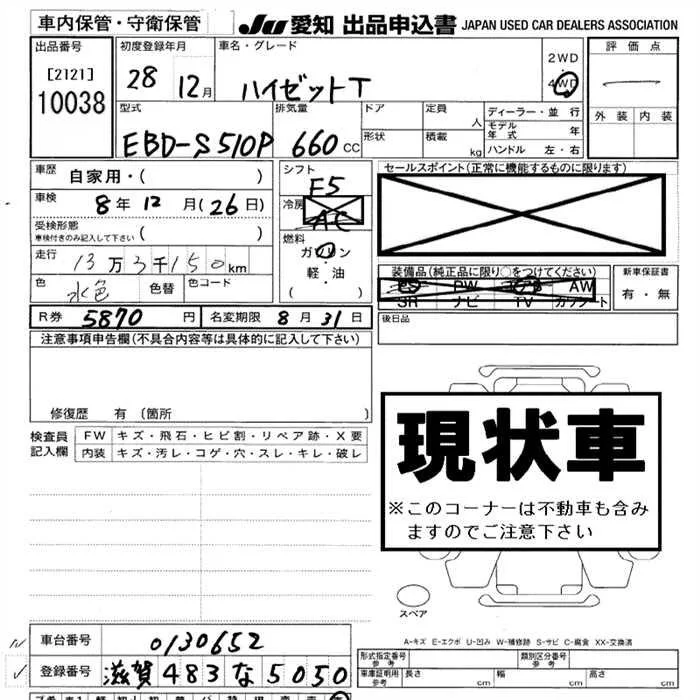 車内保管・守衛保管
JU 愛知 出品申込書 JAPAN USED CAR DEALERS ASSOCIATION
出品番号 [2121] 10038
初度登録年月 28 12月
車名・グレード ハイゼットT
2WD
4WD
評価点
外装 内装
型式 EBD-S510P
排気量 660 CC
ドア
形状
定員 人
積載 kg
ディーラー・並行
モデル年式 年
ハンドル 左・右
車歴 自家用・( )
車検 8年 12月(26日)
受検形態
車検付きのみ記入して下さい ( )
走行 13万3千150km
色 水色 色替 色コード
シフト F5
冷房 AC
燃料 ガソリン
・
軽・油
( )
セールスポイント(正常に機能するものに限ります)
装備品(純正品に限り○をつけてください)
PS PW エアB AW
SR ナビ TV カワシート
新車保証書
有・無
R券 5870 円 名変期限 8月31日
後日品
注意事項申告欄(不具合内容等は具体的に記入して下さい)
修復歴 有 (箇所 )
検査員記入欄
FW キズ・飛石・ヒビ割・リペア跡・X要
内装 キズ・汚レ・コゲ・穴・スレ・キレ・破レ
現状車
※このコーナーは不動車も含み
ますのでご注意下さい
スペア
A-キズ E-エクボ U-凹み W-補修跡 S-サビ C-腐食 XX-交換済
車台番号 0130652
登録番号 滋賀 483 な 5050
形式指定番号 参考
類別区分番号 参考
車庫証明用 参考 長さ cm 幅 cm 高さ cm